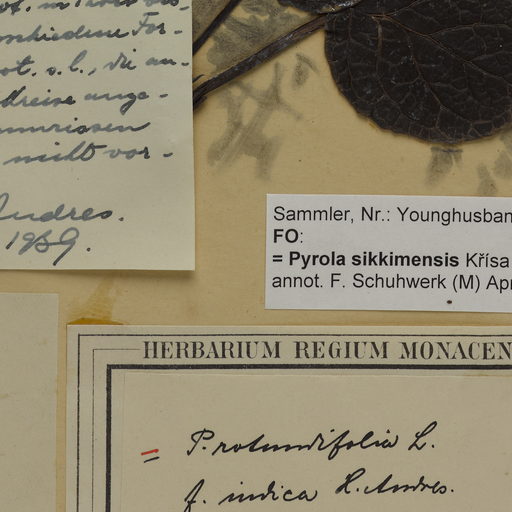 ot. s. l., die an-
Kreise ange-
umrissen
nicht vor-
Andres.
1939.
Sammler, Nr.: Younghusban
FO:
= Pyrola sikkimensis Křísa
annot. F. Schuhwerk (M) Apr
HERBARIUM REGIUM MONACEN
= P. rotundifolia L.
f. indica H. Andres.